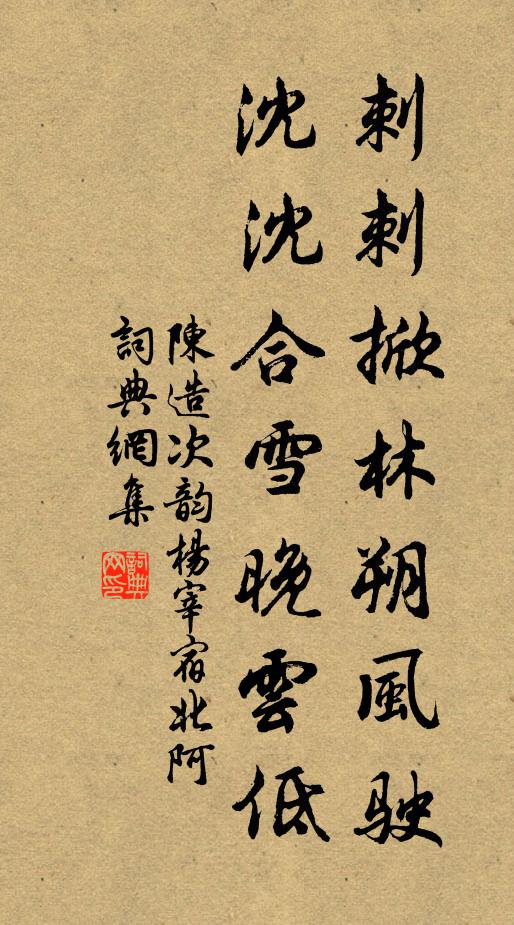 刺刺掀林朔風駛
沈沈合雪晚雲低
陳造次韵楊宰宿北阿
詞典網集
詞典網印